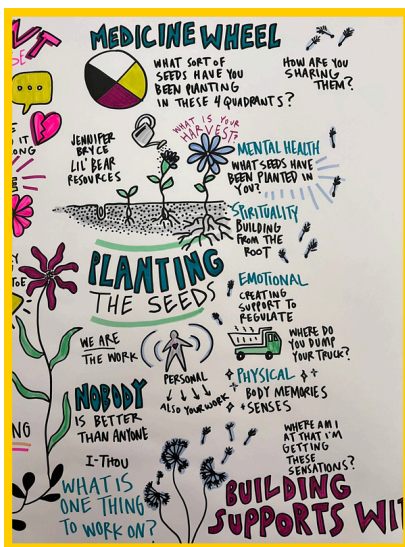 MEDICINE WHEEL
WHAT SORT OF
SEEDS HAVE YOU
BEEN PLANTING
IN THESE 4 QUADRANTS?
HOW ARE YOU
SHARING
THEM?
JENNIFER
BRYCE
LIL' BEAR
RESOURCES
WHAT IS YOUR
HARVEST?
MENTAL HEALTH
WHAT SEEDS HAVE
BEEN PLANTED IN
YOU?
SPIRITUALITY
BUILDING
FROM THE
ROOT
PLANTING
THE SEEDS
EMOTIONAL
CREATING
SUPPORT TO
REGULATE
WHERE DO
YOU DUMP
YOUR TRUCK?
WE ARE
THE WORK
PERSONAL
ALSO YOUR WORK
PHYSICAL
BODY MEMORIES
+SENSES
NOBODY
IS BETTER
THAN ANYONE
I-THOU
WHERE AM I
AT THAT I'M
GETTING
THESE
SENSATIONS?
WHAT IS
ONE THING
TO WORK ON?
BUILDING
SUPPORTS WIT